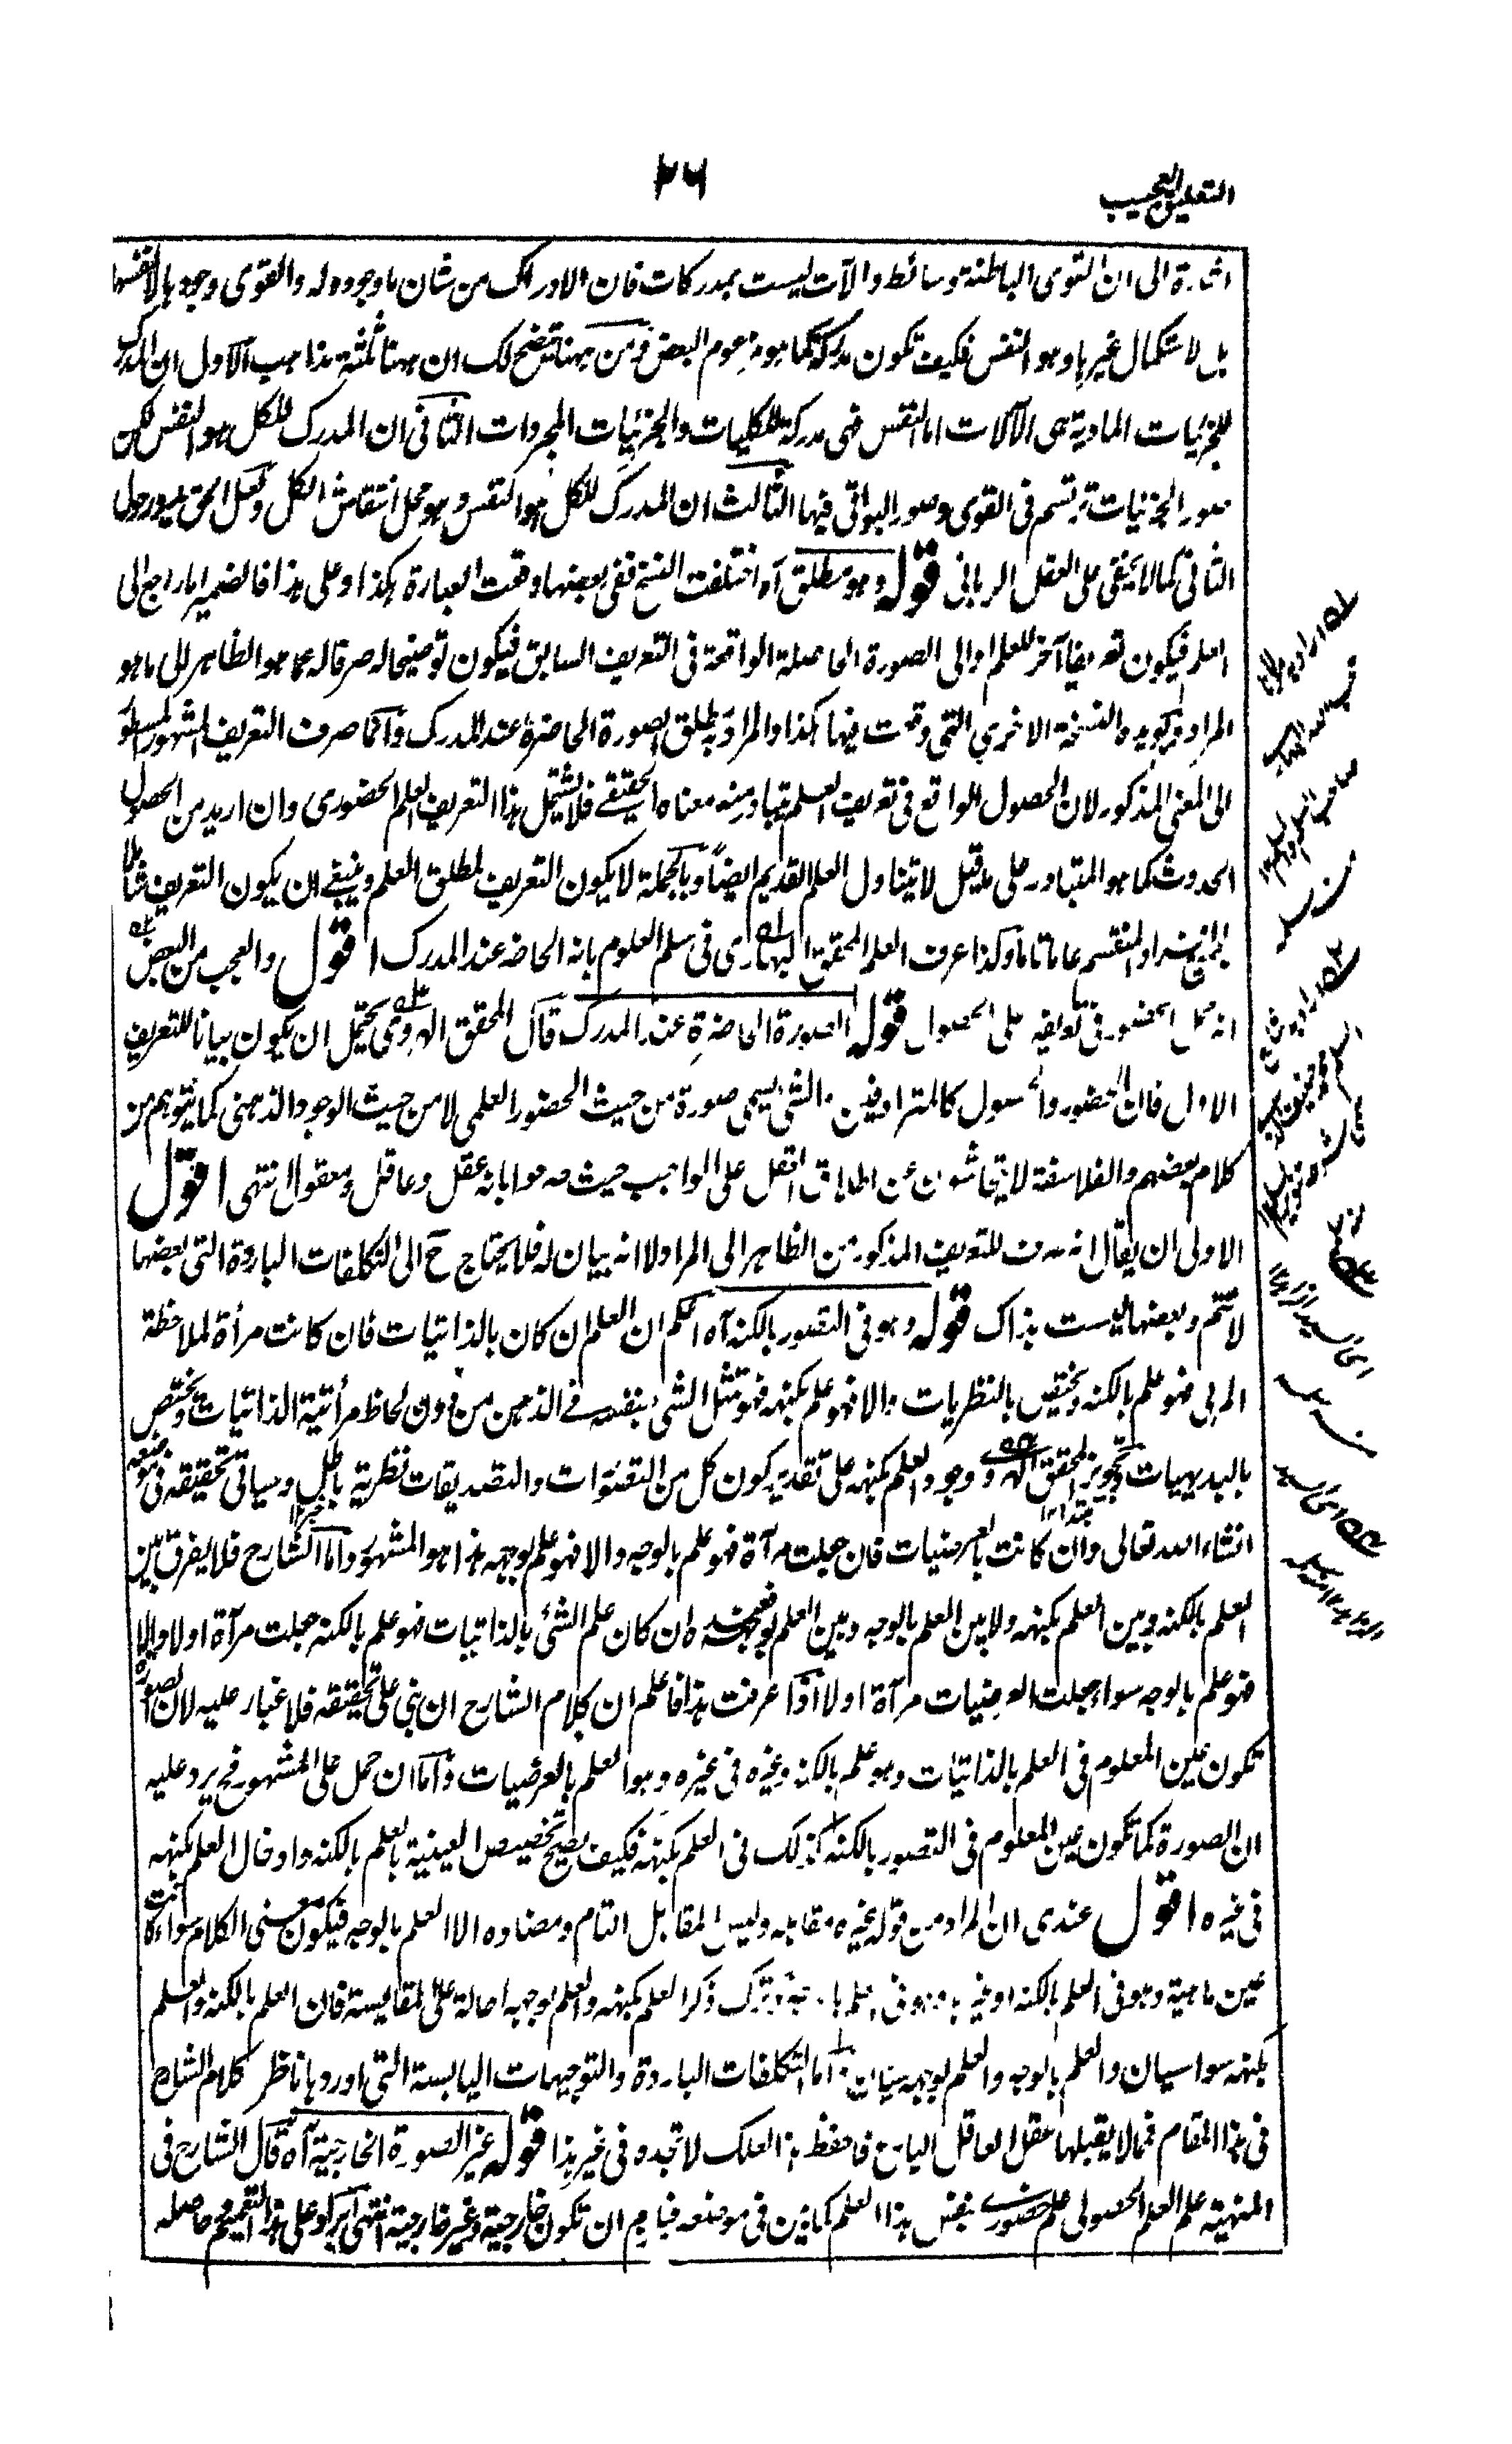 التعليق العجيب
٢٦
اشارة الى ان القوى الباطنة وسائط والآت ليست بمدركات فان الادراك من شان ما وجوده له والقوى وجودها لا لانفسها
بل لاستكمال غيرها وهو النفس فكيف تكون مدركة كما هو مزعوم البعض ومن ههنا تتضح لك ان ههنا ثلثة مذاهب الاول ان المدرك
للجزئيات المادية هى الآلات اما النفس فهى مدركة للكليات والجزئيات المجردات الثانى ان المدرك للكل هو النفس لكن
صور الجزئيات ترتسم فى القوى وصور البواقى فيها الثالث ان المدرك للكل هو النفس وهو محل انتقاش الكل ولعل الحق يدور حول
الثانى كما لا يخفى على العقل الربانى قوله وهو مطلق آه اختلفت النسخ ففى بعضها وقعت العبارة هكذا وعلى هذا فالضمير اما راجع الى
العلم فيكون تعريفا آخر للعلم او الى الصورة الحاصلة الواقعة فى التعريف السابق فيكون توضيحا له صرفا له عما هو الظاهر الى ما هو
المراد ويؤيده النسخة الاخرى التى وقعت فيها هكذا والمراد به مطلق الصورة الحاضرة عند المدرك وانما صرف التعريف المشهور
الى المعنى المذكور لان الحصول الواقع فى تعريف العلم يتبادر منه معناه الحقيقے فلا يشتمل هذا التعريف العلم الحضورى وان اريد من الحصول
الحدوث كما هو المتبادر على ما قيل لا يتناول العلم القديم ايضا وبالجملة لا يكون التعريف لمطلق العلم وينبغے ان يكون التعريف شاملا
او المنقسم عاما تاما وكذا عرف العلم المحقق البهارى فى سلم العلوم بانه الحاضر عند المدرك اقول والعجب من البعض
انه حمل الحضور فى تعريفه على الحصول قوله الصورة الحاضرة عند المدرك قال المحقق الهروى يحتمل ان يكون بيانا للتعريف
الاول فان الحضور والحصول كالمترادفين والشئ يسمى صورة من حيث الحضور العلمى لا من حيث الوجود الذهنى كما يتوهم من
كلام بعضهم والفلاسفة لا يتحاشون عن اطلاق العقل على الواجب حيث صرحوا بانه عقل وعاقل ومعقول انتهى اقول
الاولى ان يقال انه صرف للتعريف المذكور من الظاهر الى المراد لا انه بيان له فلا يحتاج ح الى التكلفات الباردة التى بعضها
لا تتم وبعضها ليست بذاك قوله وهو فى التصور بالكنه آه اعلم ان العلم ان كان بالذاتيات فان كانت مرأة لملاحظة
المرئى فهو علم بالكنه ويختص بالنظريات والا فهو علم بكنهه فهو تمثل الشئ بنفسه فے الذهن من دون لحاظ مرأتية الذاتيات ويختص
بالبديهيات وتجويز المحقق الهروى وجود العلم بكنهه على تقدير كون كل من التصورات والتصديقات نظرية باطل وسياتى تحقيقه فى موضعه
انشاء الله تعالى وان كانت بالعرضيات فان جعلت مرآة فهو علم بالوجه والا فهو علم بوجهه هذا هو المشهور واما الشارح فلا يفرق بين
العلم بالكنه وبين العلم بكنهه ولا بين العلم بالوجه وبين العلم بوجهه فعنده ان كان علم الشئ بالذاتيات فهو علم بالكنه جعلت مرآة اولا والا
فهو علم بالوجه سواء جعلت العرضيات مرآة اولا اذا عرفت هذا فاعلم ان كلام الشارح ان بنى على تحقيقه فلا غبار عليه لان الصورة
تكون عين المعلوم فى العلم بالذاتيات وهو علم بالكنه وغيره فى غيره وهو العلم بالعرضيات واما ان حمل على المشهور فح يرد عليه
ان الصورة كما تكون عين المعلوم فى التصور بالكنه كذلك فى العلم بكنهه فكيف يصح تخصيص العينية بالعلم بالكنه وادخال العلم بكنهه
فى غيره اقول عندى ان المراد من قوله غيره مقابله وليس المقابل التام ومضاده الا العلم بالوجه فيكون معنى الكلام سواء كانت
عين ماهية وهو فى العلم بالكنه او غيرها وهو فى العلم بالوجه وترك ذكر العلم بكنهه والعلم بوجهه احالة على المقايسة فان العلم بالكنه والعلم
بكنهه سواسيان والعلم بالوجه والعلم بوجهه سيان اما التكلفات الباردة والتوجيهات اليابسة التى اوردها ناظر كلام الشارح
فى هذا المقام فمما لا يقبلها عقل العاقل البارع فاحفظ هذا لعلك لا تجده فى غير هذا قوله غير الصورة الخارجية آه قال الشارح فى
المنهية علم العلم الحصولى علم حضورے بنفس هذا العلم كما بين فى موضعه فيلزم ان تكون خارجية وغير خارجية انتهى ايراد على هذا التعميم حاصله